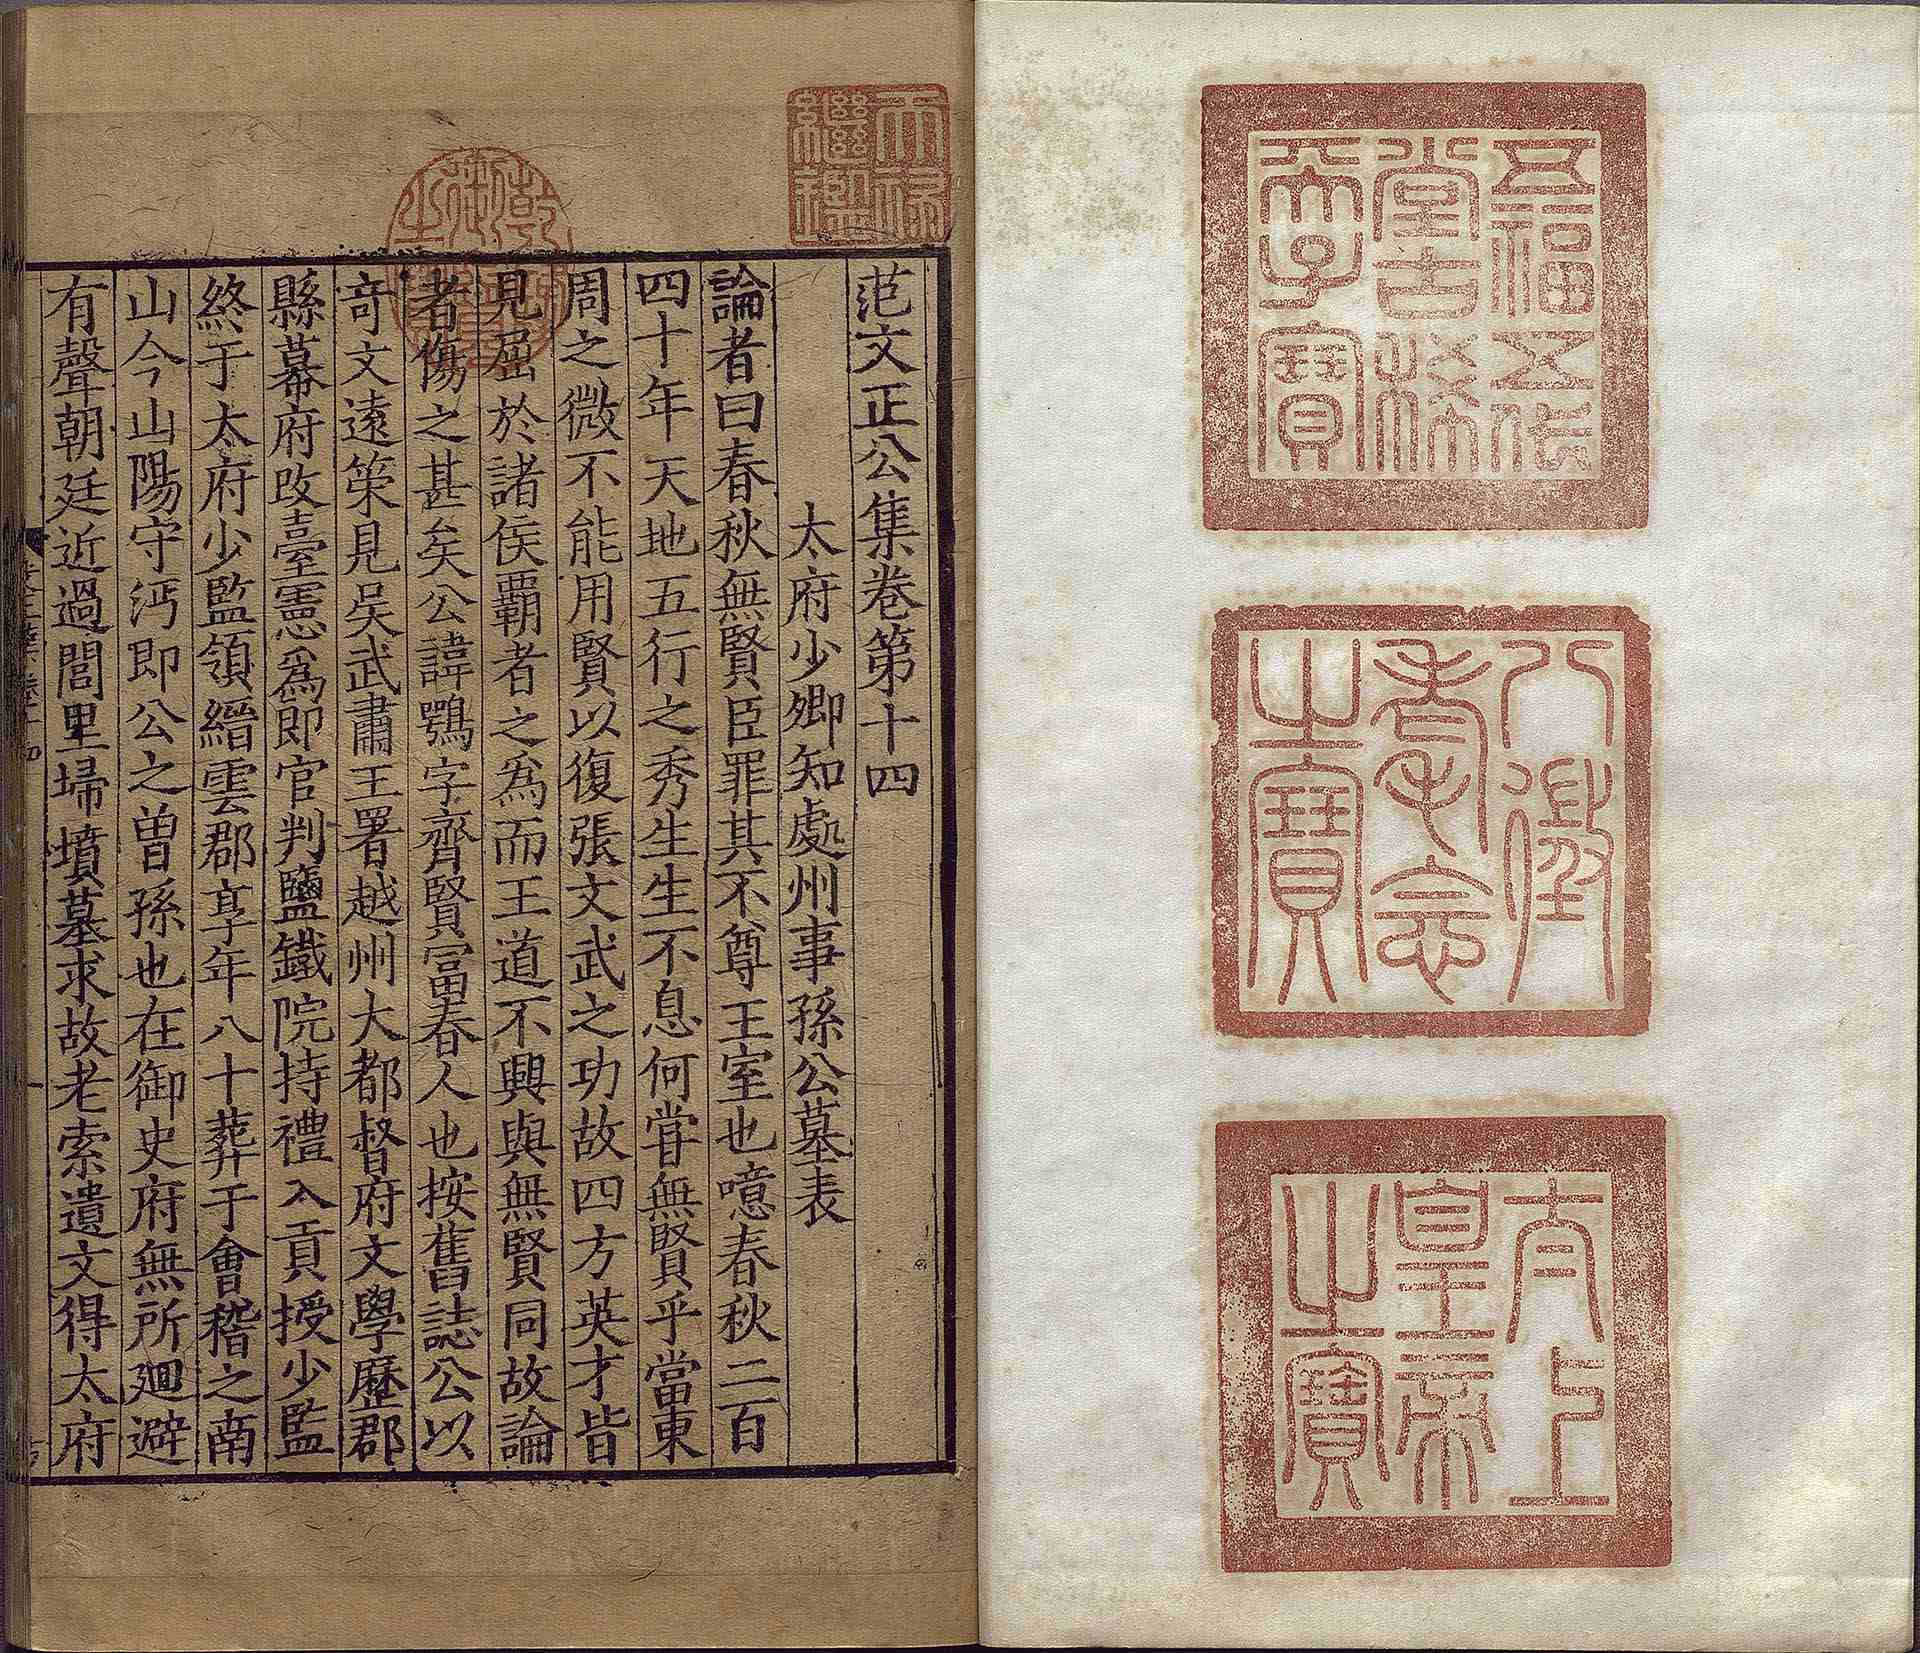 五福五代
堂古稀
天子寶
八徵
耄念
之寶
太上
皇帝
之寶
天祿
繼鑑
乾隆御覽之寶
范文正公集卷第十四
太府少卿知處州事孫公墓表
論者曰春秋無賢臣罪其不尊王室也噫春秋二百
四十年天地五行之秀生生不息何嘗無賢乎當東
周之微不能用賢以復張文武之功故四方英才皆
見屈於諸侯覇者之爲而王道不興與無賢同故論
者傷之甚矣公諱鶚字齊賢富春人也按舊誌公以
竒文遠策見吴武肅王署越州大都督府文學歷郡
縣幕府改臺憲爲即官判鹽鐵院持禮入貢授少監
終于太府少監領縉雲郡享年八十葬于會稽之南
山今山陽守沔即公之曽孫也在御史府無所廻避
有聲朝廷近過閭里埽墳墓求故老索遺文得太府